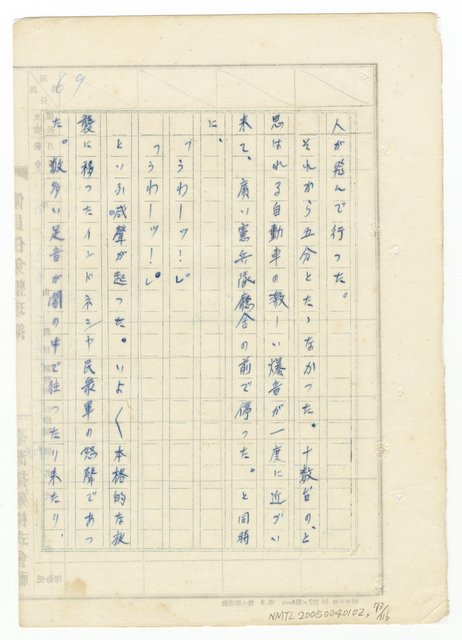 69
人が飛んで行った。
それから五分とたゝなかった。十数台の、と
思はれる自動車の激しい爆音が一度に近づい
来て、廣い憲兵隊廳舎の前で停った。と同時
に、
「うわーッ！」
「うわーッ！」
といふ喊聲が起った。いよ〱本格的な夜
襲に移ったインドネシヤ民衆軍の怒聲であっ
た。数多い足音が闇の中で往ったり来たり、
NMTL20050040102, 73/116